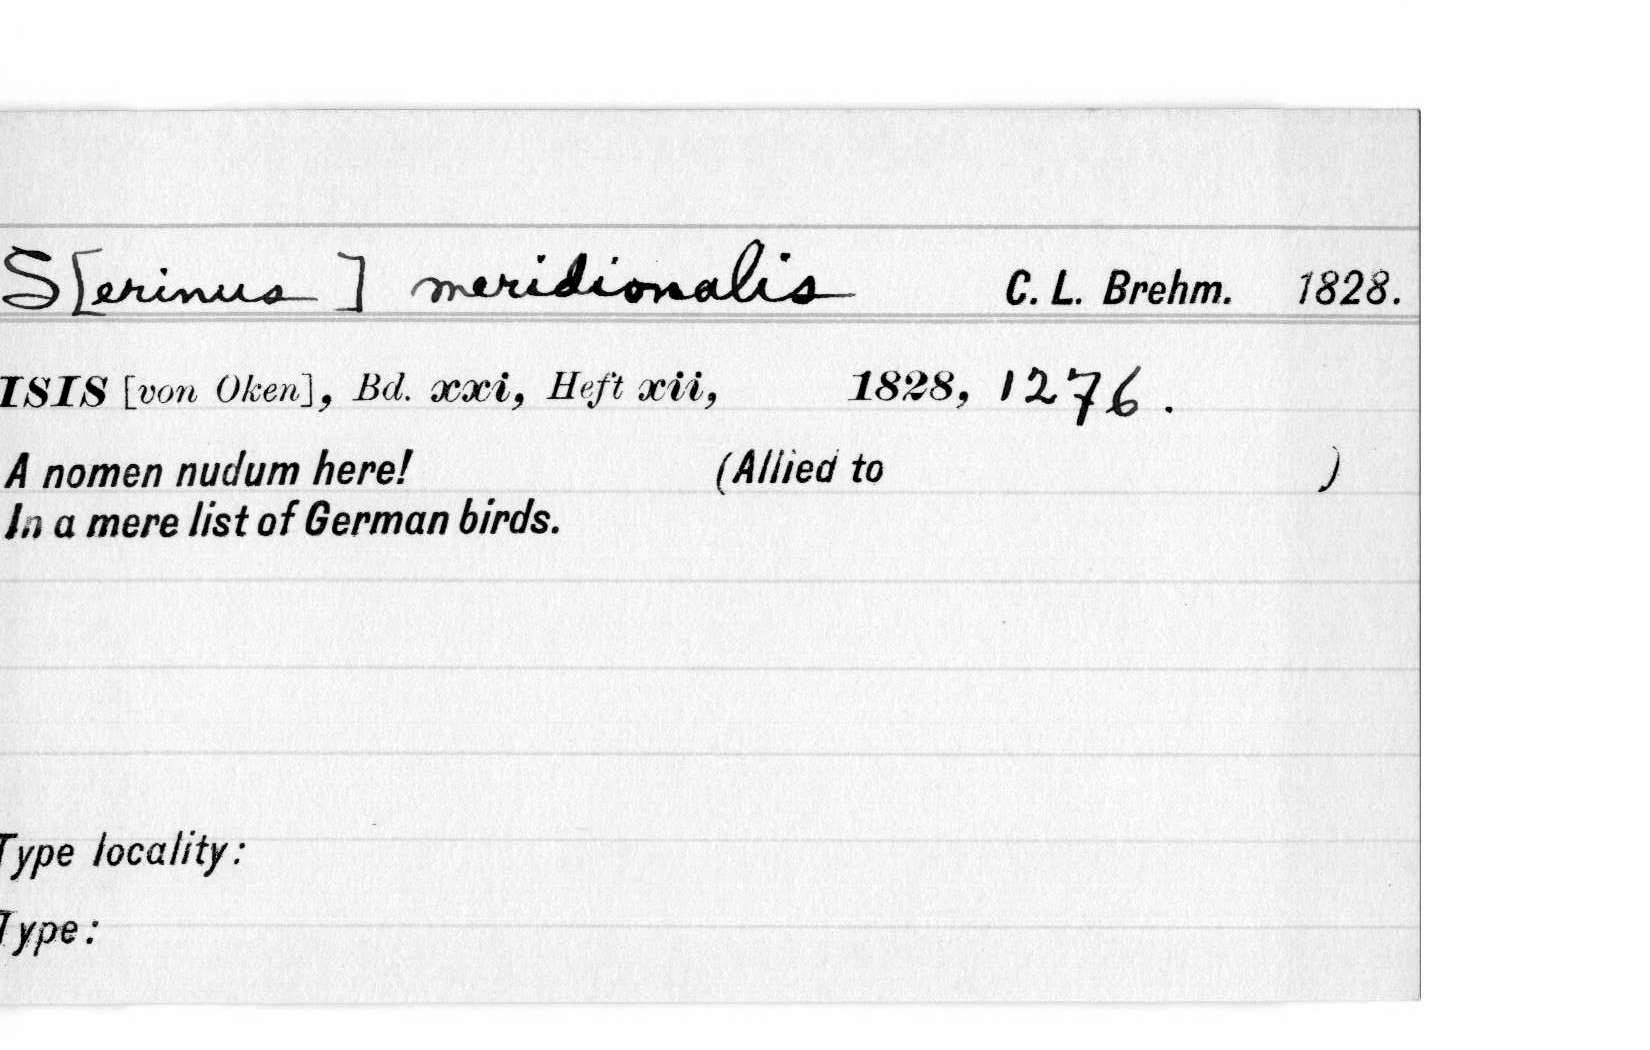 S[erinus ] meridionalis C. L. Brehm. 1828.
ISIS [von Oken], Bd. xxi, Heft xii, 1828, 1276.
A nomen nudum here! (Allied to )
In a mere list of German birds.
Type locality:
Type: